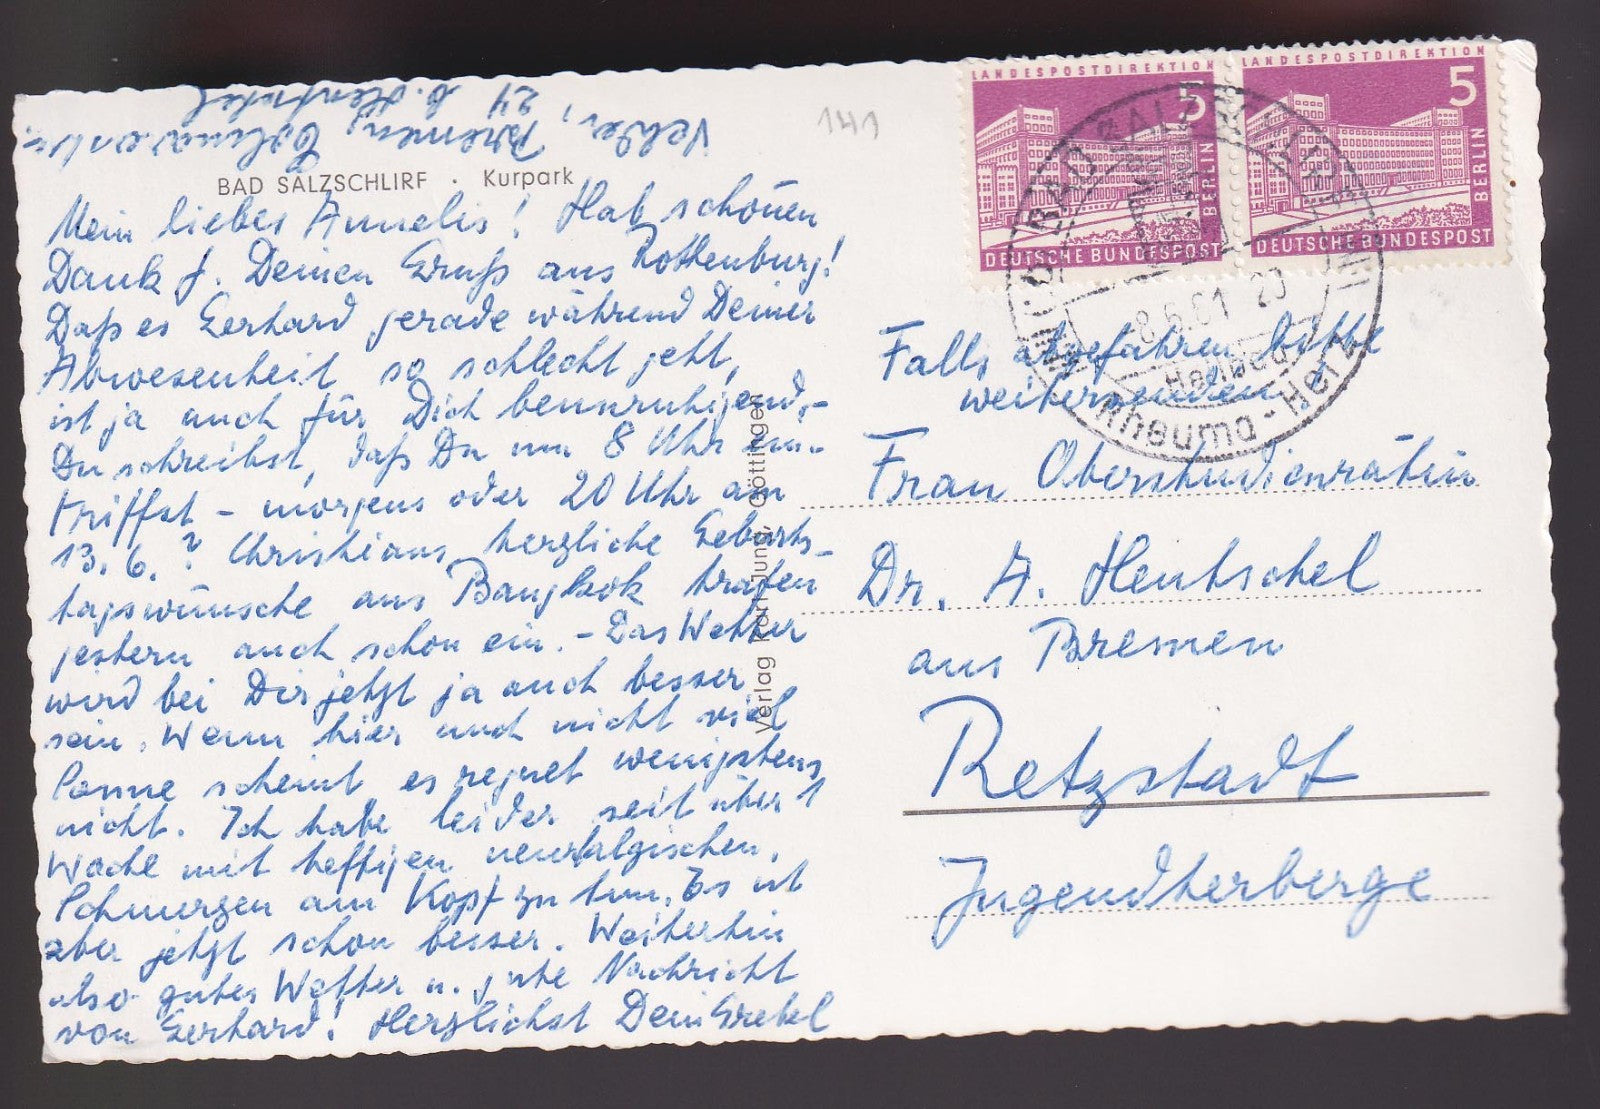 141
BAD SALZSCHLIRF · Kurpark
Mein liebes Annelis! Hab schönen
Dank f. Deinen Gruß aus Rothenburg!
Daß es Gerhard gerade während Deiner
Abwesenheit so schlecht geht,
ist ja auch für Dich beunruhigend,-
Du schreibst, daß Du um 8 Uhr ein-
triffst - morgens oder 20 Uhr am
13. 6. ? Christians herzliche Geburts-
tagswünsche aus Bangkok trafen
gestern auch schon ein. - Das Wetter
wird bei Dir jetzt ja auch besser
sein. Wenn hier auch nicht viel
Sonne scheint, es regnet wenigstens
nicht. Ich habe leider seit über 1
Woche mit heftigen neuralgischen
Schmerzen am Kopf zu tun. Es ist
aber jetzt schon besser. Weiterhin
also gutes Wetter u. gute Nachricht
von Gerhard! Herzlichst Dein Gretel
Bremen
24
b. Hentschel
Verlag Karl Jung, Göttingen
LANDESPOSTDIREKTION
5
BERLIN
DEUTSCHE BUNDESPOST
LANDESPOSTDIREKTION
5
BERLIN
DEUTSCHE BUNDESPOST
BAD SALZ
8.6.61 20
Heilbad
Rheuma-Herz
Falls abgefahren bitte
weitersenden!
Frau Oberstudienrätin
Dr. A. Hentschel
aus Bremen
Retzstadt
Jugendherberge